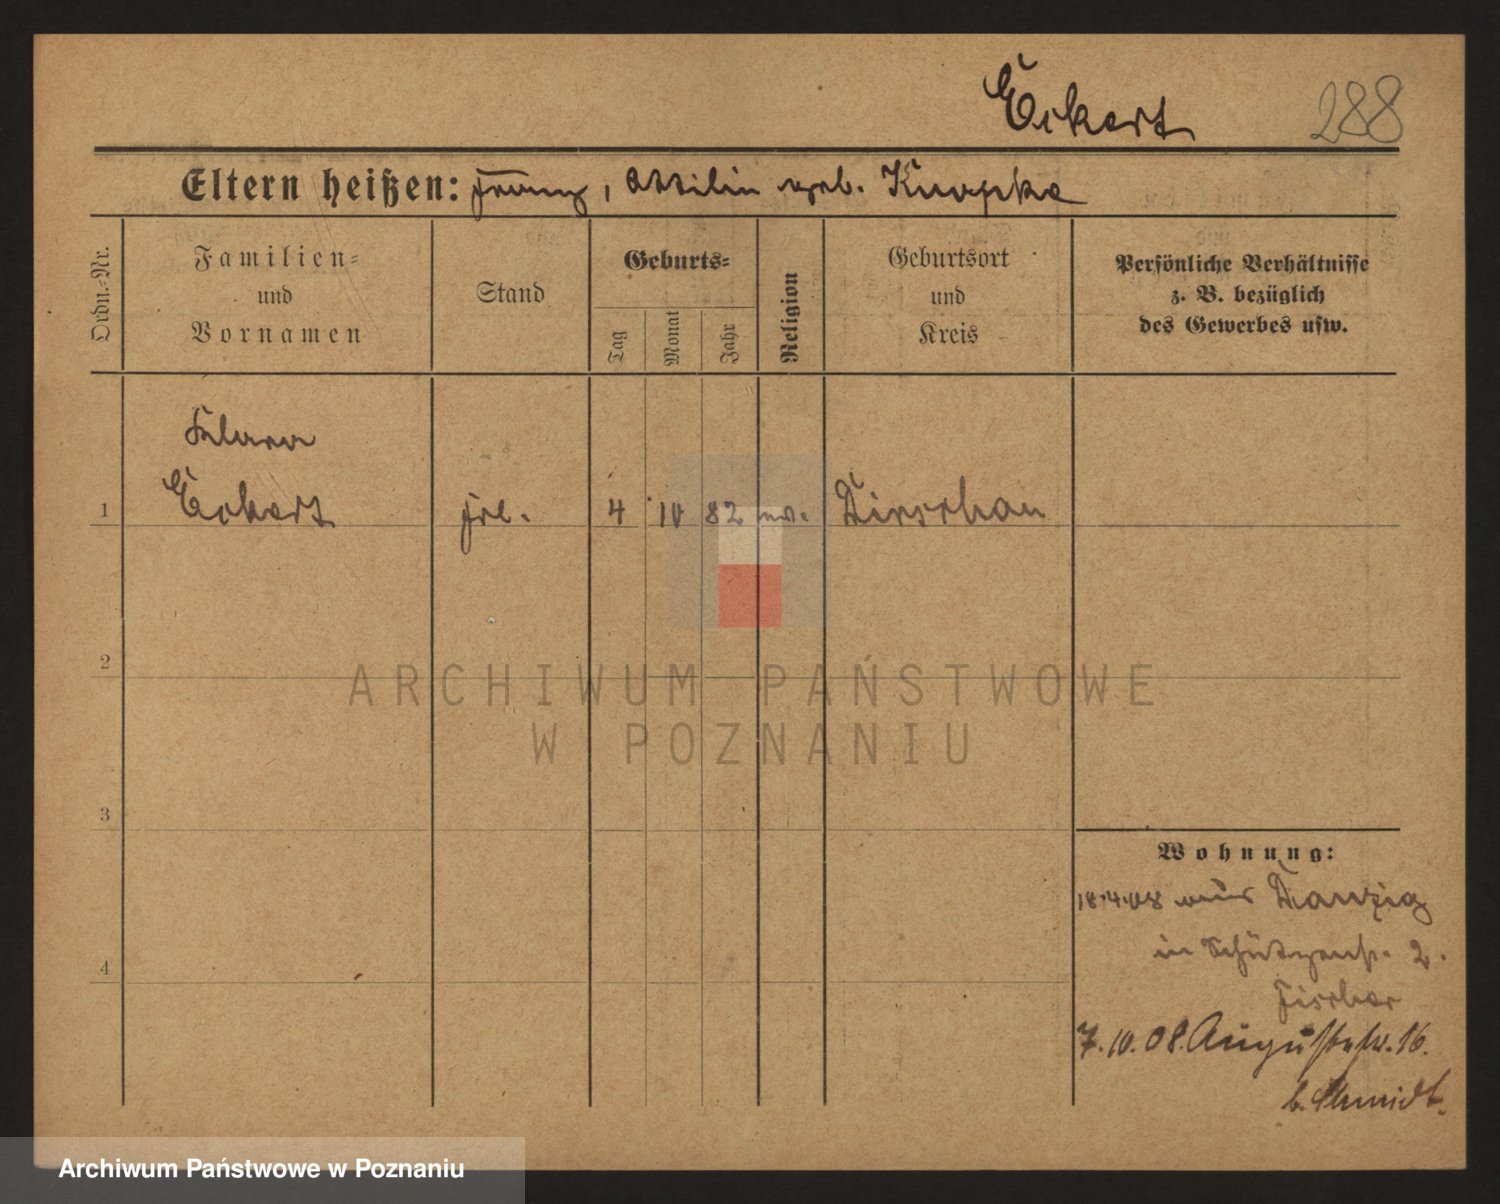 Eckert
288
Eltern heißen: Franz, Ottilie geb. Knopke
Ordn.-Nr.
Familien-
und
Vornamen
Stand
Geburts-
Tag
Monat
Jahr
Religion
Geburtsort
und
Kreis
Persönliche Verhältnisse
z. B. bezüglich
des Gewerbes usw.
Klara
1 Eckert 4 10 82 ev. Dirschau
2
ARCHIWUM PAŃSTWOWE
W POZNANIU
3
4
Wohnung:
18.4.08 aus Danzig
in Schützenstr. 2.
Fischer
7.10.08. Augustastr. 16.
b. Schmidt.
Archiwum Państwowe w Poznaniu